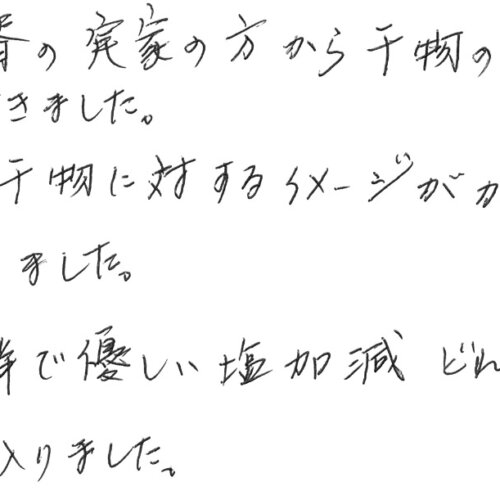 の実家の方から干物の
きました。
干物に対するイメージが
ました。
で優しい塩加減 どれ
入りました。